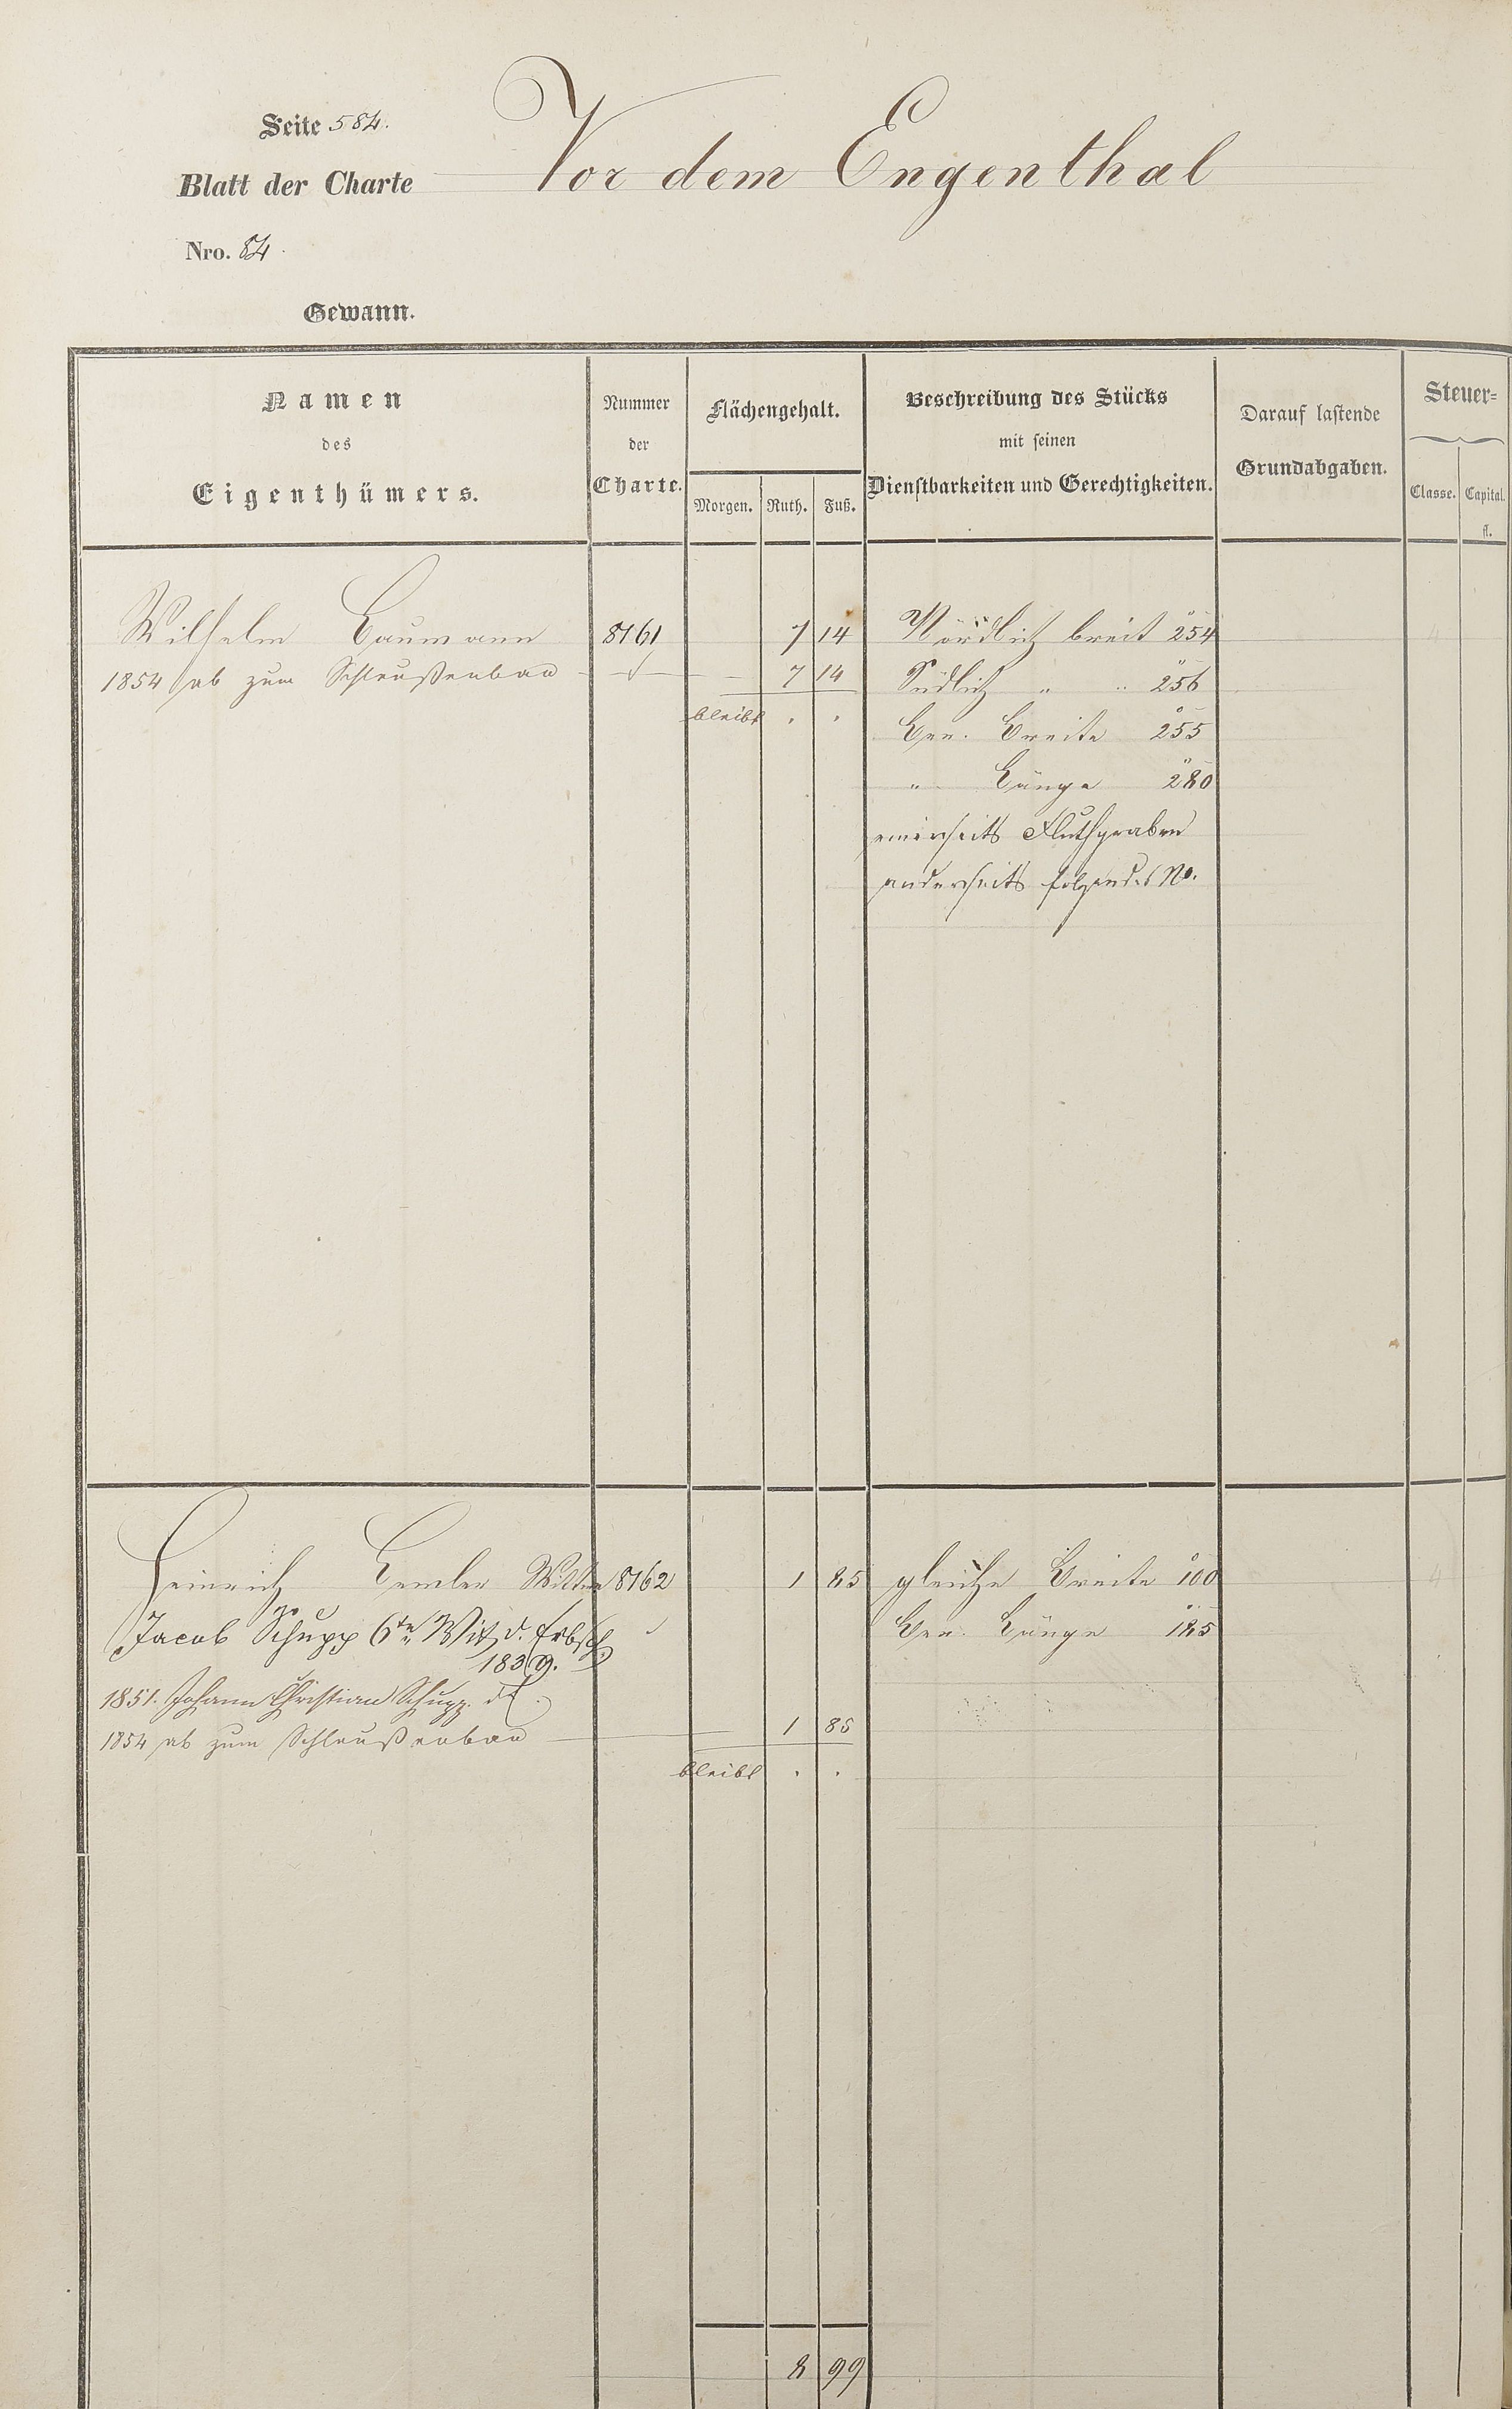 Seite 584.
Vor dem Engenthal
Blatt der Charte
Nro. 84
Gewann.
Namen
des
Eigenthümers.
Nummer
der
Charte.
Flächengehalt.
Morgen. Ruth. Fuß.
Beschreibung des Stücks
mit seinen
Dienstbarkeiten und Gerechtigkeiten.
Darauf lastende
Grundabgaben.
Steuer=
Classe. Capital.
fl.
Wilhelm Baumann 8161 7 14 Nördlich breit 254
1854 ab zum Schleußenbau 7 14 Südlich " " 256
bleibt . . Gen. Breite 255
" Länge 280
einerseits Fluthgraben
anderseits folgendes No.
Heinrich Wittwe 8162 1 85 gleiche Breite 100
Jacob Schupp 6te Witz d. Erbsch. Gen. Länge 185
1839.
1851. Johann Christian Schupp
1854 ab zum Schleußenbau 1 85
bleibt . .
8 99